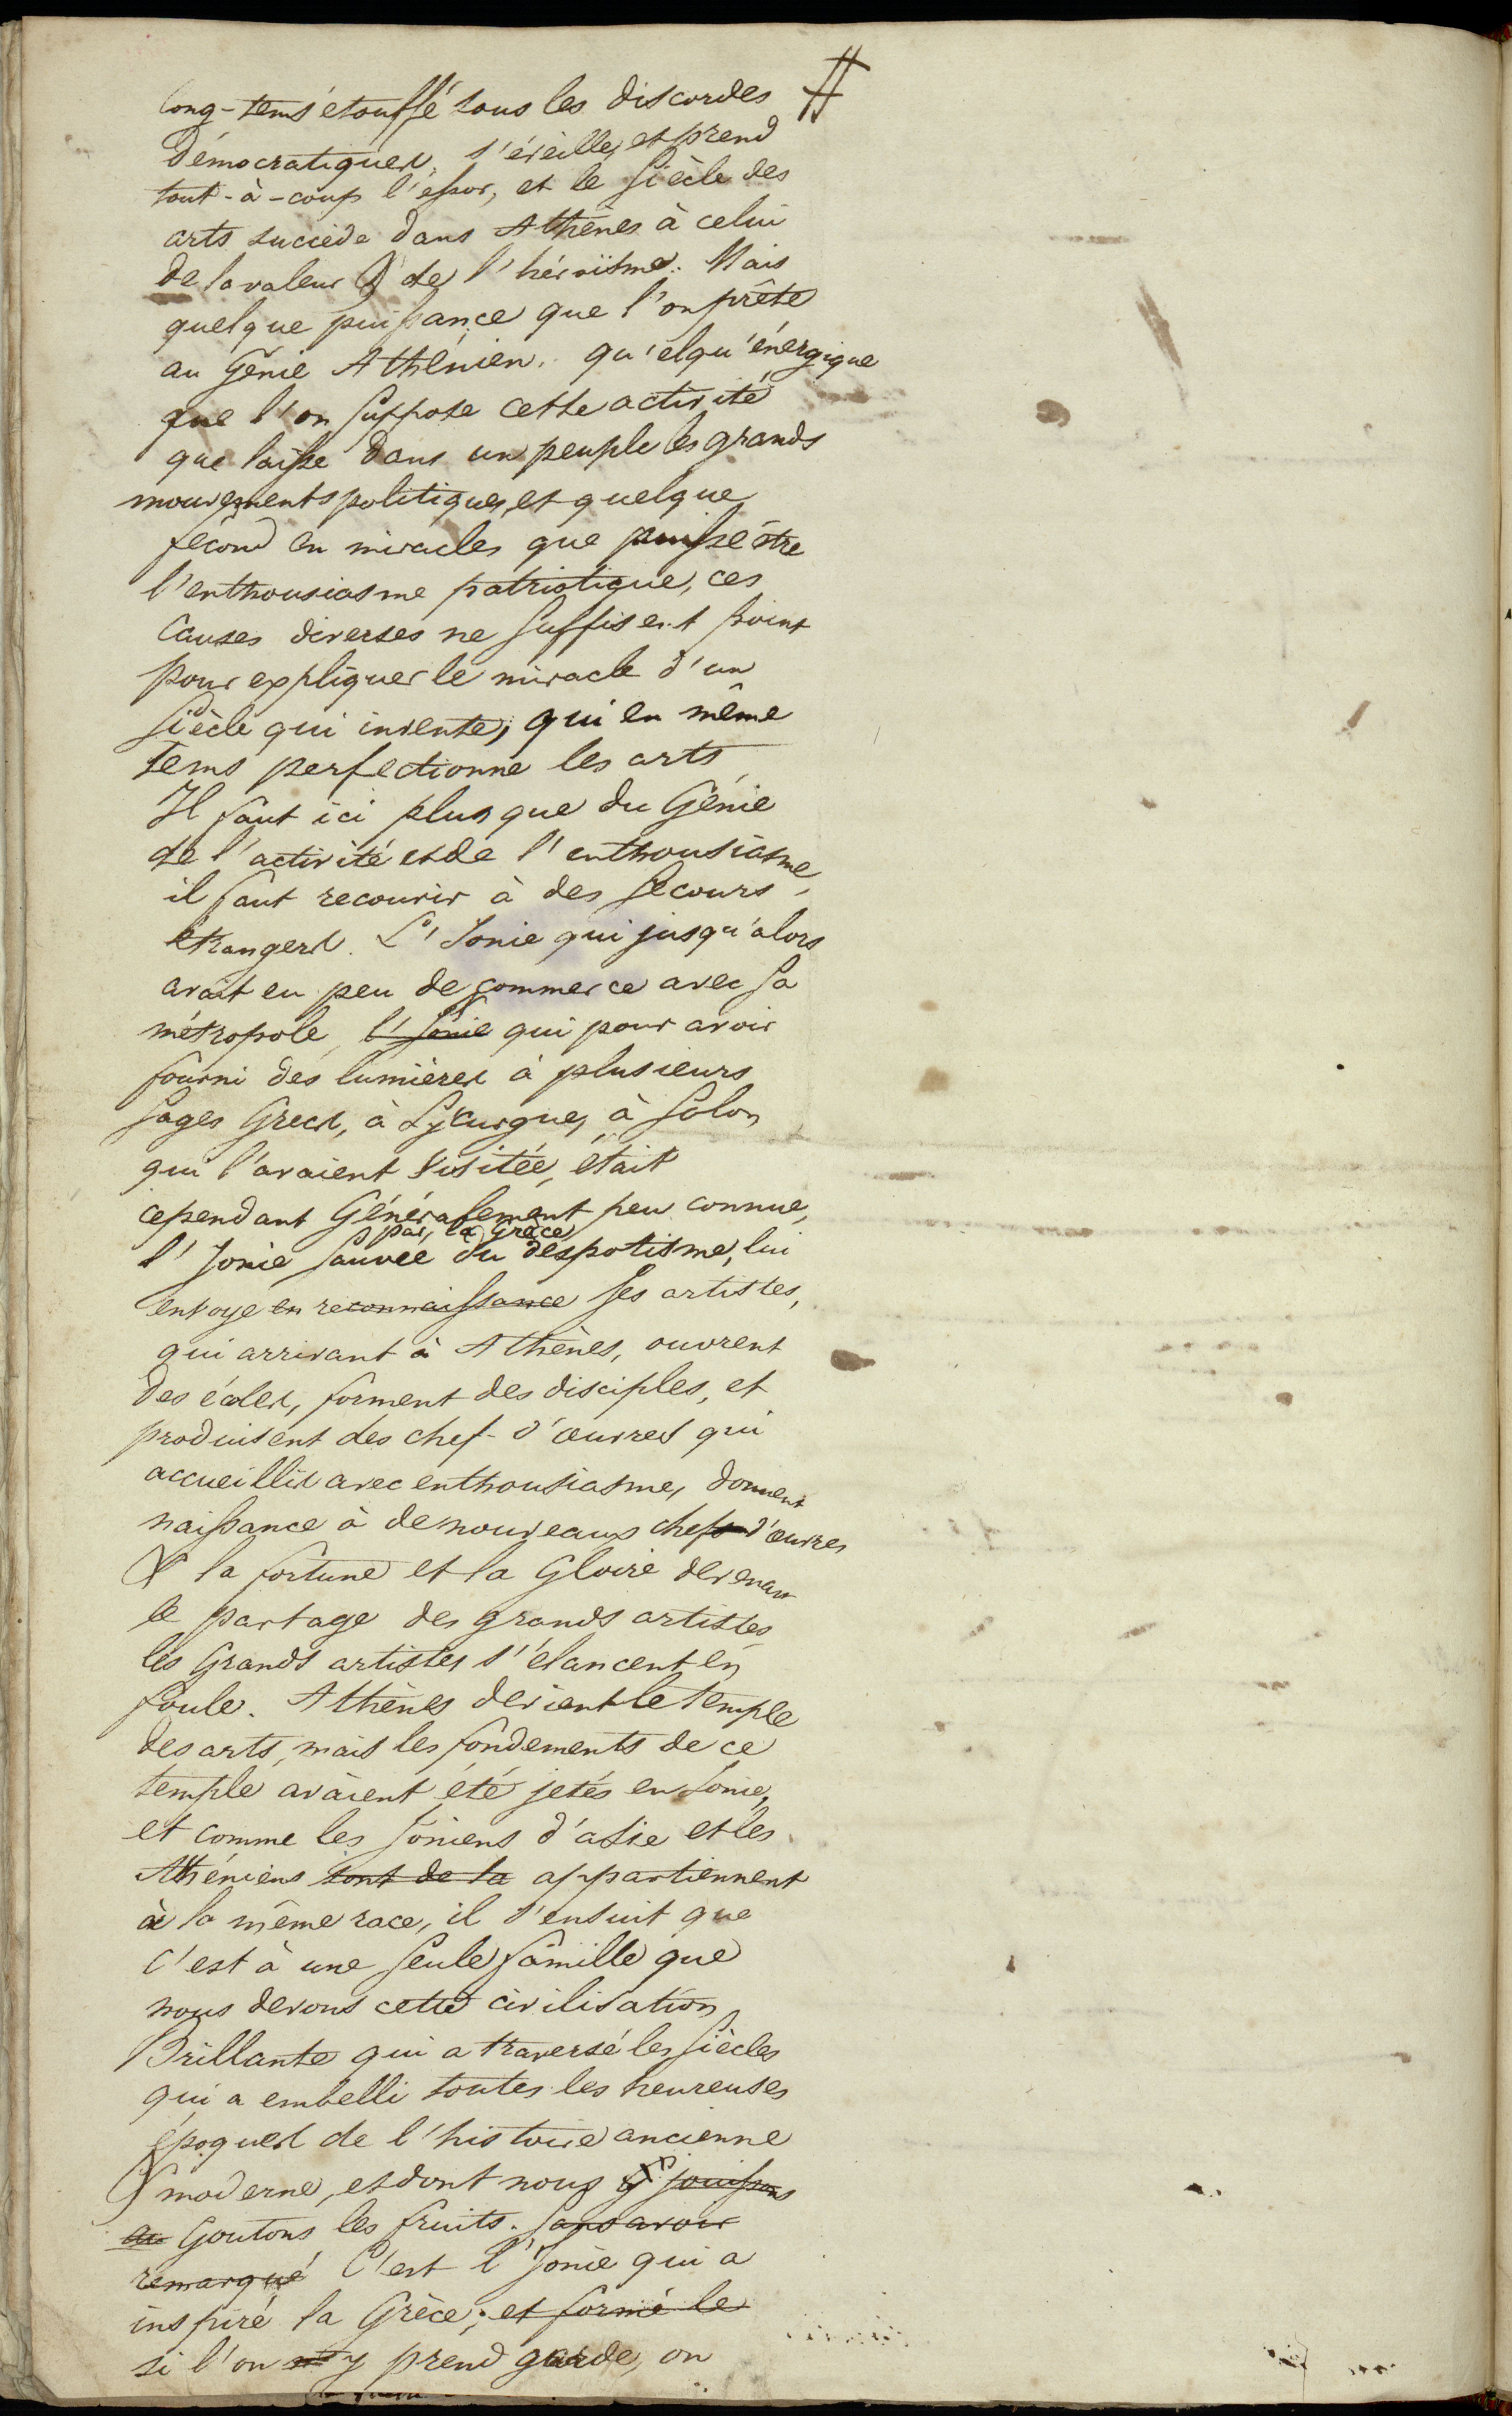 long-tems étouffé sous les discordes #
démocratiques, s'éveille, et prend
tout-à-coup l'essor, et le siècle des
arts succède dans Athènes à celui
de la valeur & de l'héroïsme. Mais
quelque puissance que l'on prête
au Génie Athénien, qu'elqu'énergique
que l'on suppose cette activité
que laisse dans un peuple les grands
mouvements politiques, et quelque
fécond en miracles que puisse être
l'enthousiasme patriotique, ces
causes diverses ne suffisent point
pour expliquer le miracle d'un
siècle qui invente, qui en même
tems perfectionne les arts
Il faut ici plus que du Génie
de l'activité et de l'enthousiasme,
il faut recourir à des secours
étrangers. L'Ionie qui jusqu'alors
avait eu peu de commerce avec sa
métropole, l'Ionie qui pour avoir
fourni des lumières à plusieurs
sages Grecs, à Lycurgue, à Solon
qui l'avaient visitée, était
cependant Généralement peu connue,
par la Grèce
l'Ionie sauvée du déspotisme, lui
envoye en reconnaissance ses artistes,
qui arrivant à Athènes, ouvrent
des écoles, forment des disciples, et
produisent des chef-d'œuvres qui
accueillis avec enthousiasme, donnent
naissance à de nouveaux chefs d'œuvres
& la fortune et la Gloire devenant
le partage des grands artistes
les Grands artistes s'élancent en
foule. Athènes devient le temple
des arts, mais les fondements de ce
temple avaient été jetés en Ionie,
et comme les Ioniens d'asie et les
Athéniens sont de la appartiennent
à la même race, il s'ensuit que
c'est à une seule famille que
nous devons cette civilisation
Brillante qui a traversé les siècles
qui a embelli toutes les heureuses
époques de l'histoire ancienne
& moderne, et dont nous jouissons
au Goutons les fruits. sans avoir
remarqué C'est l'Ionie qui a
inspiré la Grèce; et formé le
si l'on y prend garde, on